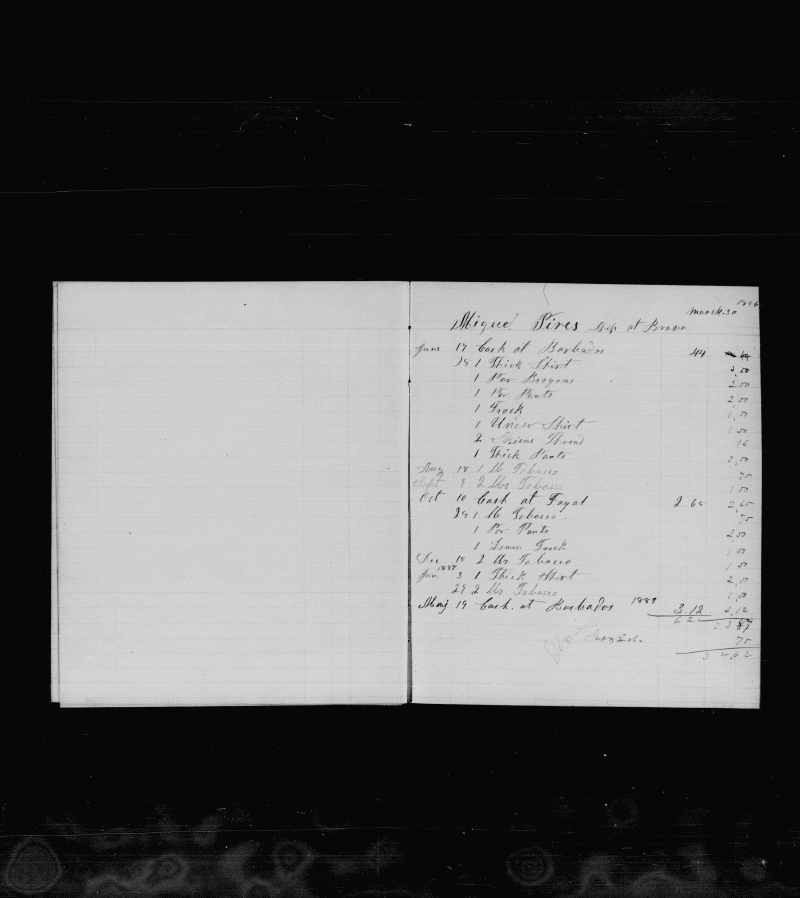 1886
March 30
Miguel Pires at Brava
June 17 Cash at Barbados 44
28 1 Thick Shirt 3,50
1 Par Brogans 2,00
1 Par Pants 2,00
1 Frock 1,50
1 Under Shirt 1,50
2 Skiens Thread 16
1 Thick Pants 2,50
Aug 18 1 lb Tobacco 75
Sept 8 2 lbs Tobacco 1,50
Oct 10 Cash at Fayal 2.65 2,65
29 1 lb Tobacco 75
1 Par Pants 2,00
1 Frock 1,50
Dec 18 2 lbs Tobacco 1,50
1887
Jan 3 1 Thick Shirt 2,50
28 2 lbs Tobacco 1,50
May 19 Cash at Barbados 1887 3.12 3,12
6 2 33 87
75
34,62